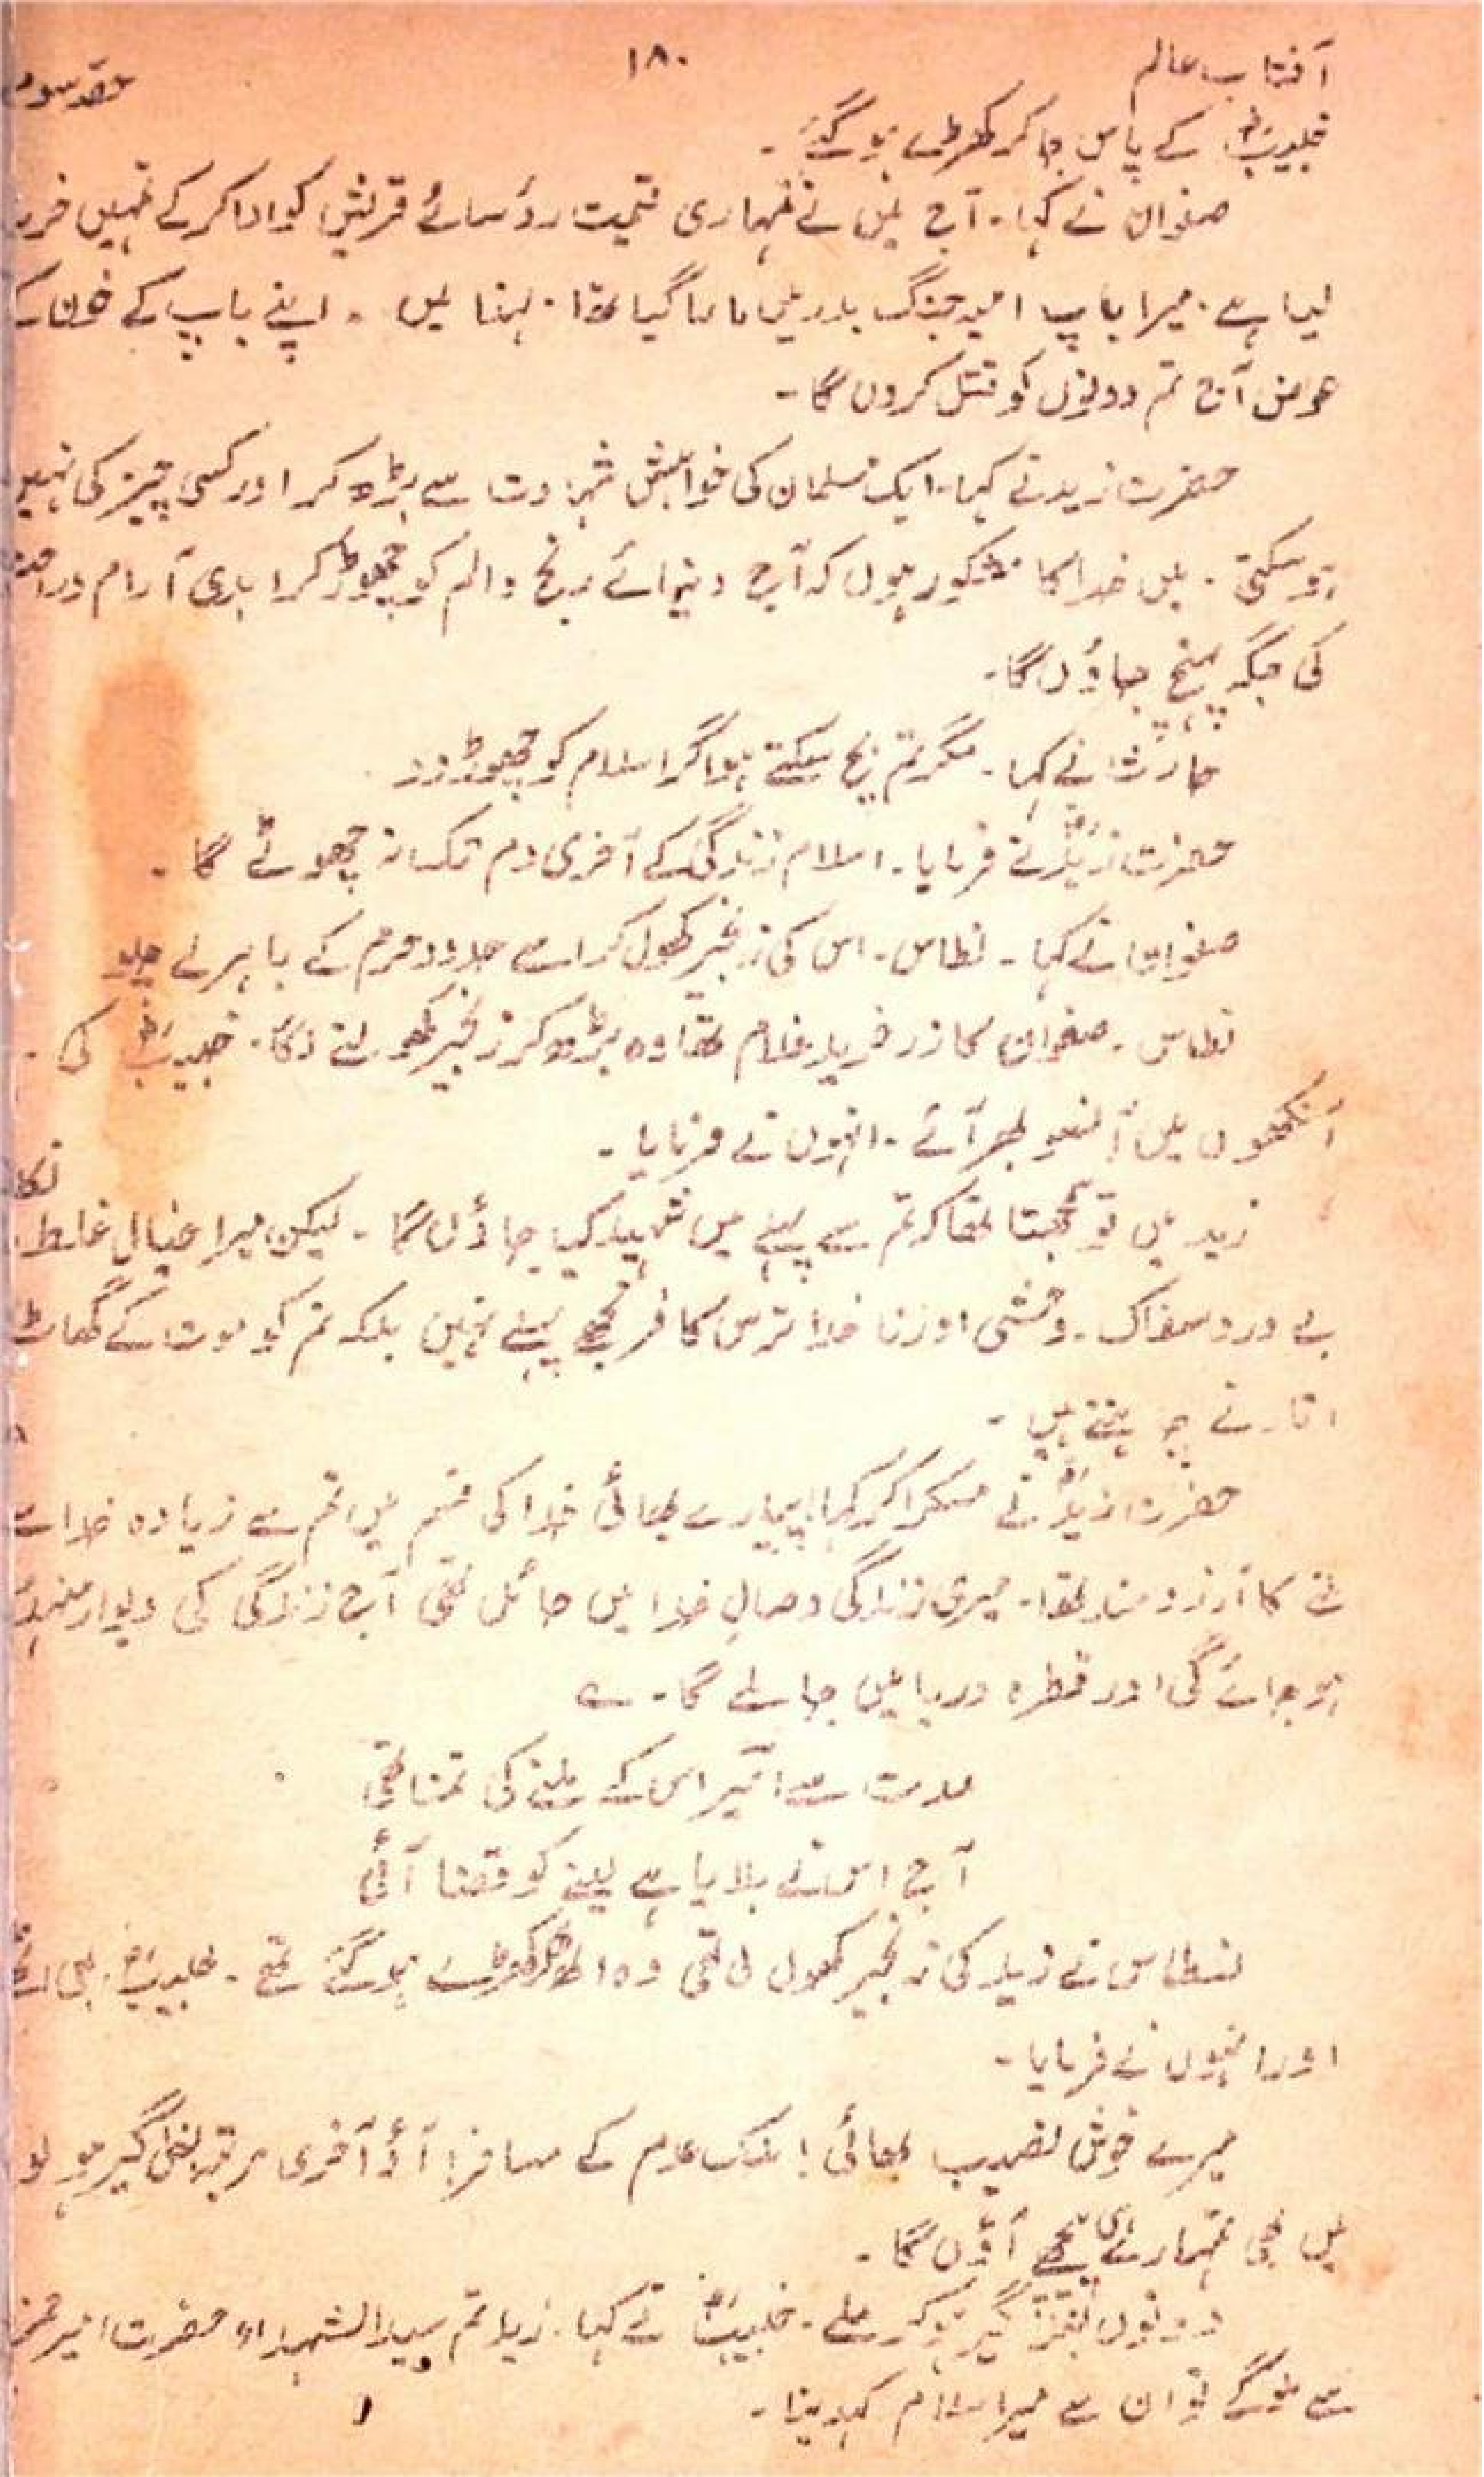 آفتاب عالم ۱۸۰ حصہ سوم
خبیبؓ کے پاس جا کر کھڑے ہو گئے۔
صفوان نے کہا۔ آج میں نے تمہاری قیمت رؤسائے قریش کو ادا کر کے تمہیں خرید
لیا ہے۔ میرا باپ امیہ جنگ بدر میں مارا گیا تھا۔ لہذا میں ۔ اپنے باپ کے خون کے
عوض آج تم دونوں کو قتل کروں گا۔
حضرت زید نے کہا۔ ایک مسلمان کی خواہش شہادت سے بڑھ کر اور کسی چیز کی نہیں
ہو سکتی ۔ میں خدا کا مشکور ہوں کہ آج دنیائے رنج و الم کو چھوڑ کر ابدی آرام و راحت
کی جگہ پہنچ جاؤں گا۔
حارث نے کہا۔ مگر تم بچ سکتے ہو اگر اسلام کو چھوڑ دو
حضرت زیدؓ نے فرمایا۔ اسلام زندگی کے آخری دم تک نہ چھوٹے گا ۔
صفوان نے کہا ۔ نطاس۔ اس کی زنجیر کھول کر اسے حدود حرم کے باہر لے چلو
نطاس ۔ صفوان کا زر خرید غلام تھا وہ بڑھ کر زنجیر کھولنے لگا۔ خبیبؓ کی ۔
آنکھوں میں آنسو بھر آئے ۔ انہوں نے فرمایا ۔
زید میں تو سمجھتا تھا کہ تم سے پہلے میں شہید کیا جاؤں گا ۔ لیکن میرا خیال غلط نکلا
بے درد سفاک ۔ وحشی اور نا خدا ترس کافر مجھے پہلے نہیں بلکہ تم کو موت کے گھاٹ
اتارنے چاہتے ہیں ۔
حضرت زیدؓ نے مسکرا کر کہا! پیارے بھائی خدا کی قسم میں تم سے زیادہ خدا سے
ملنے کا آرزو مند تھا۔ میری زندگی وصالِ خدا میں حائل تھی آج زندگی کی دیوار منہدم
ہو جائے گی اور قطرہ دریا میں جا ملے گا۔ ے
مدت سے امیر اس کے ملنے کی تمنا تھی
آج اس نے بلایا ہے لینے کو قضا آئی
نسطاس نے زید کی زنجیر کھول لی تھی وہ اٹھ کر کھڑے ہو گئے تھے ۔ خبیبؓ بھی اٹھے
اور انہوں نے فرمایا۔
میرے خوش نصیب بھائی! ملک عدم کے مسافر! آؤ آخری مرتبہ بغل گیر ہو لو
میں بھی تمہارے ہی پیچھے آؤں گا ۔
دونوں بغل گیر ہو کر ملے ۔ خبیبؓ نے کہا۔ زید تم سید الشہداء حضرت امیر حمزہ
سے ملو گے تو ان سے میرا سلام کہدینا ۔